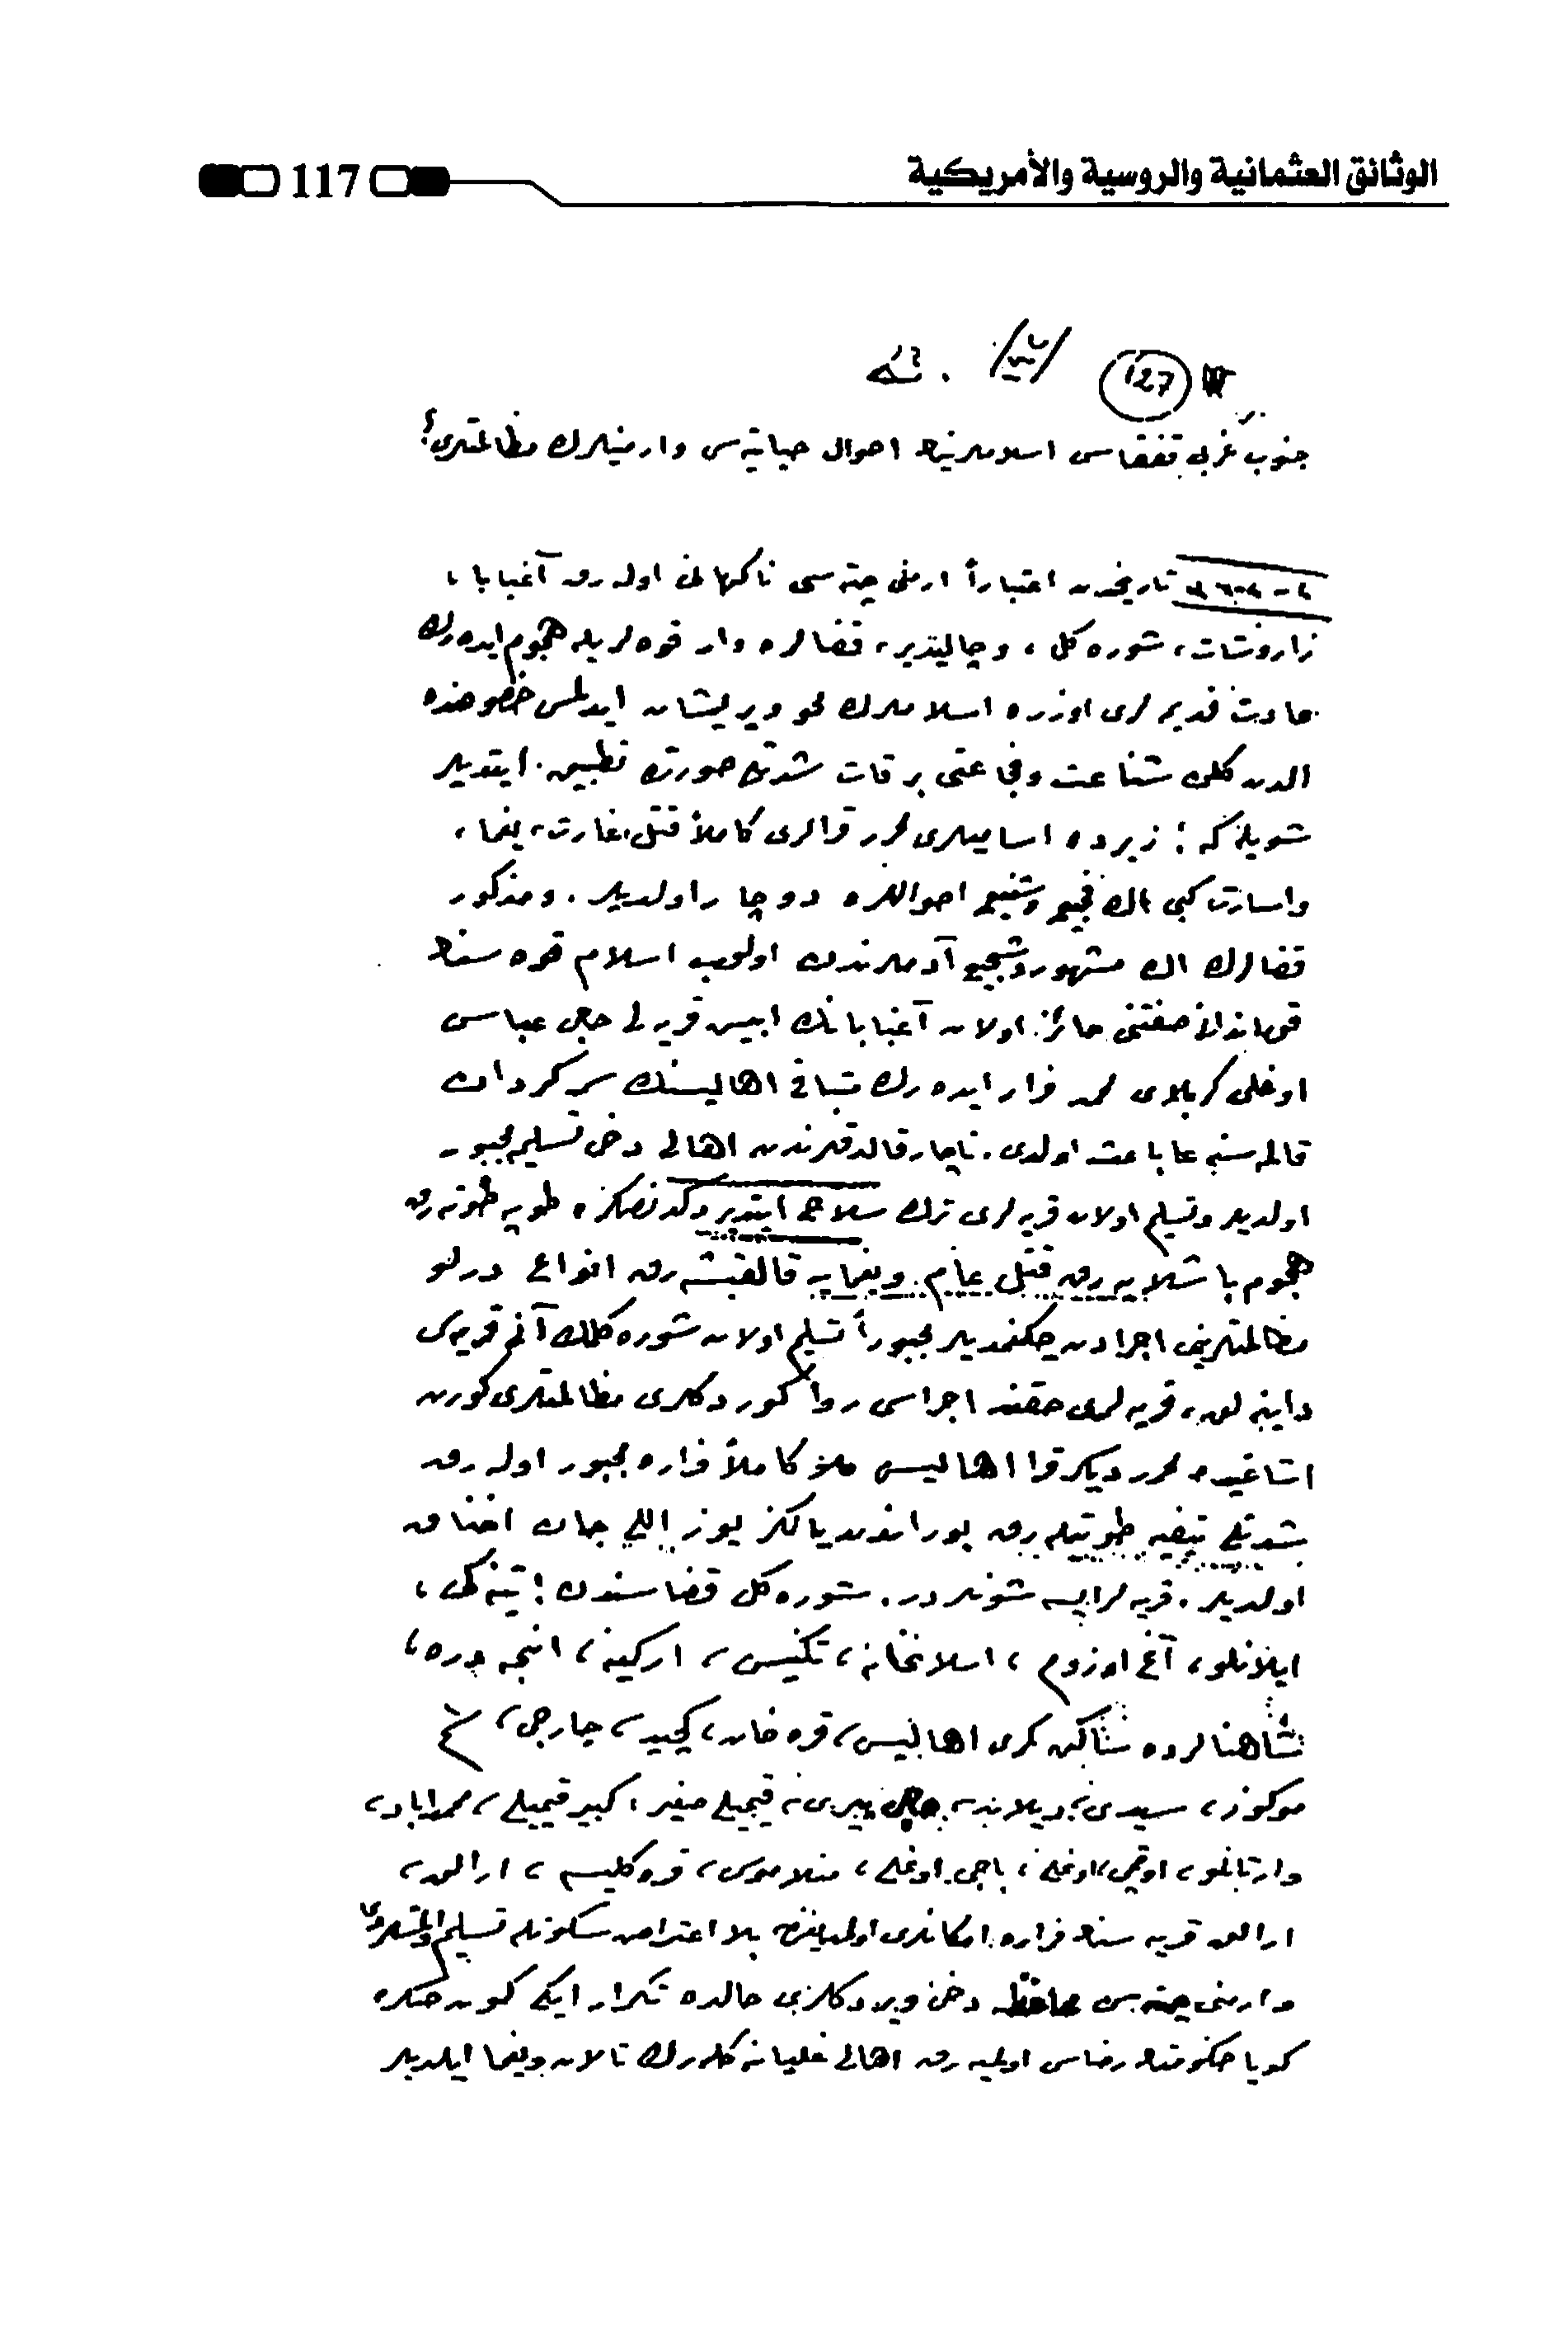 الوثائق العثمانية والروسية والأمريكية
117
127
جنوب غربی قفقاس اسلاملرینك احوال حیاتیه‌سی وارمنیلرك مظالمتلری؛
تاریخدن اعتباراً ارمنی چته‌سی ناكهانی اوله‌رق آغبابا،
زاروشات، شوره كل، وچالدیر، قضالره وار قوه‌لریله هجوم ایده‌رك
عادت قدیمه‌لری اوزره اسلاملرك محو وپریشان ایدلمسی خصوصنده
الدن كلن شناعت وفجاعتی بر قات شدتلی صورتده تطبیق ایتدیلر
شویله كه؛ زیرده اسامیلری محرر قرالری كاملاً قتل، غارت، یغما،
واسارت كبی اك فجیع وشنیع احواللره دوچار اولدیلر. ومذكور
قضالرك اك مشهور وشجیع آدملرندن اولوب اسلام قوه سنك
قوماندانی صفتنی حائز اولان آغبابانك ابیس قریه‌لی حاجی عباس
اوغلی كربلای محمد فرار ایده‌رك متباقی اهالیسنك سركردان
قالمه‌سنه باعث اولدی. ناچار قالدقلرندن اهالی دخی تسلیمه مجبور
اولدیلر وتسلیم اولان قریه‌لری ترك سلاح ایتدیردكدنصكره طوپه طوته‌رق
هجوم باشلایه‌رق قتل عام ویغمایه قالقیشه‌رق انواع درلو
مظالمتلرینی اجرادن چكنمدیلر مجبوراً تسلیم اولان شوره كلك آنی قریه‌سی
داینه‌لق، قریه‌لری حقنده اجراسی روا كوردكلری مظالمتلری كورن
اشاغیده محرر دیكر قرا اهالیسی كاملاً فراره مجبور اوله‌رق
شدتلی تعقیبه طوتیله‌رق بورانده یالكز یوز اللی جان اختناق
اولدیلر. قریه‌لر ایسه شونلردر. شوره كل قضاسندن؛ تپه‌كی،
ایلانلو، آغ اوزوم، اسلانخانه، تكنیس، اركینه، اینجه دره،
شاهنالرده ساكن كرد اهالیسی، قره خان، كچید، جارجی،
موكوز، سیدی، دیلانه، حاجی پیری، قیمیلی صغیر، كبیر قیمیلی، محمداباد،
وارتانلو، اوقچی اوغلی، باجی اوغلی، منلا موسی، قره كلیسه، ارالق،
ارالق قریه سنك فراره امكانلری اولمدیغندن بلا اعتراض سكوتله تسلیم
وارمنی چته‌سی محافظه دخی ویردكلری حالده تكرار ایكی كون صكره
كویا حكومتك رضاسی اولمیه‌رق اهالی غلیانه كله‌رك تالان ویغما ایلدیلر